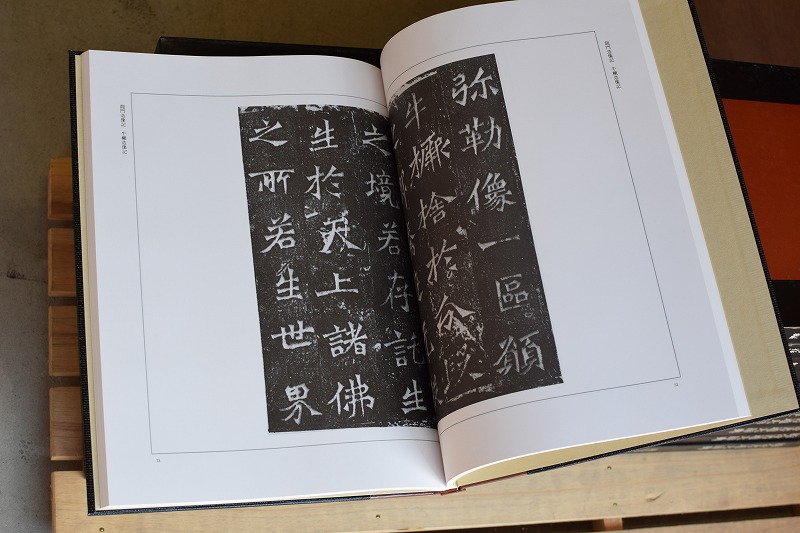 龍門造像記　牛橛造像記
弥勒像一區願
牛橛捨於分
之境若存託生
生於天上諸佛
之所若生世界
龍門造像記　牛橛造像記